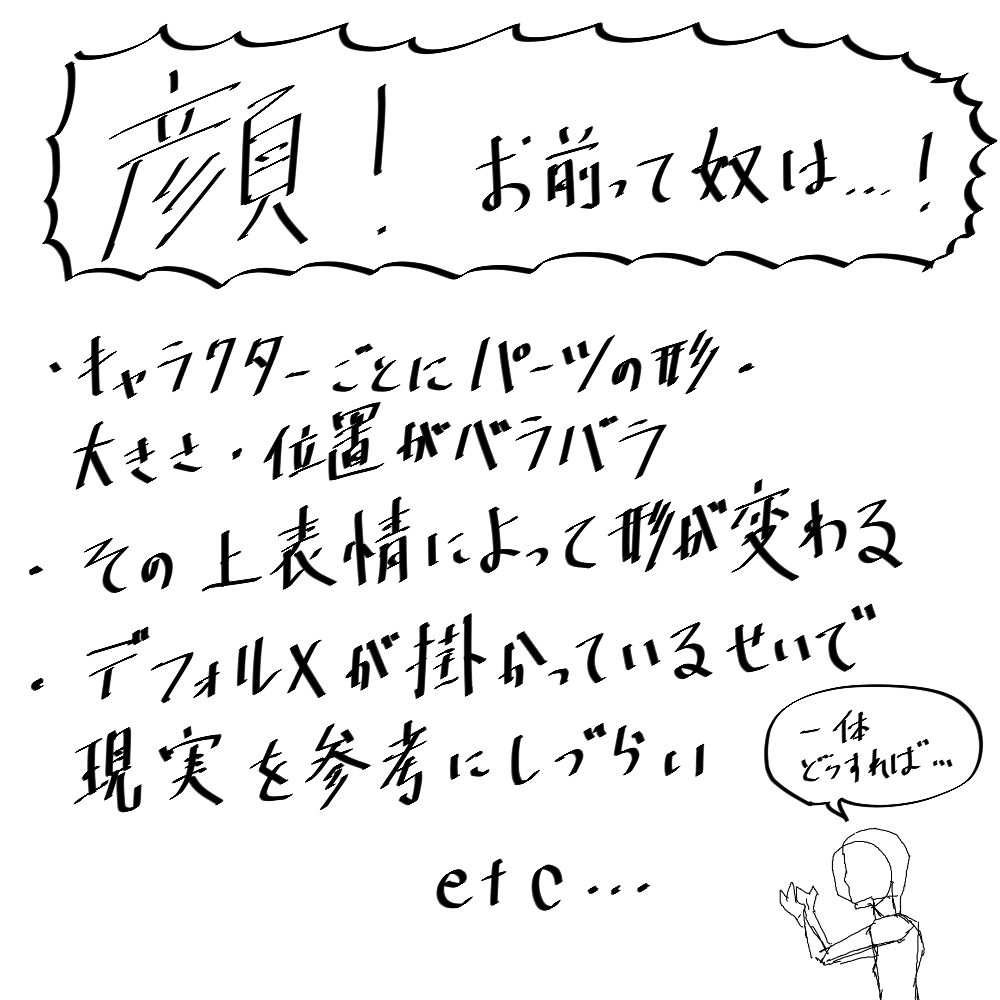 顔! お前って奴は…!
・キャラクターごとにパーツの形・
大きさ・位置がバラバラ
・その上表情によって形が変わる
・デフォルメが掛かっているせいで
現実を参考にしづらい
etc…
一体
どうすれば…